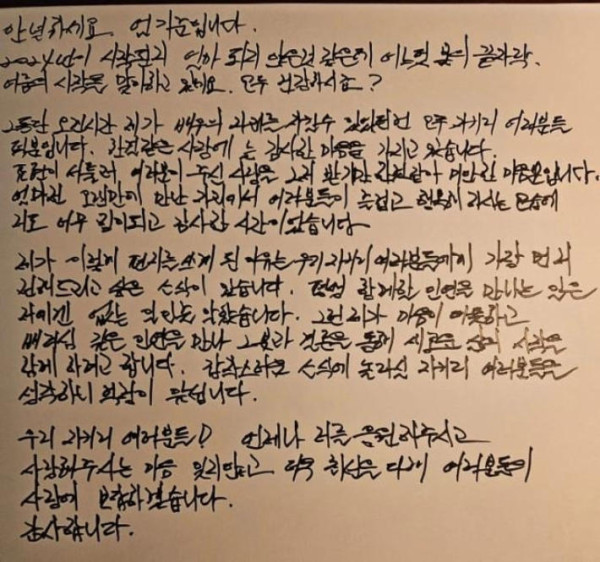 안녕하세요. 엄기준입니다.
2024년이 시작된지 얼마 되지 않은것 같은데 어느덧 봄의 끝자락.
여름의 시작을 맞이하고 있네요. 모두 건강하시죠?
그동안 오랜시간 제가 배우의 자리를 지킬수 있었던건 모두 자기리 여러분들
덕분입니다. 한결같은 사랑에 늘 감사한 마음을 가지고 있습니다.
표현이 서툴러 여러분이 주신 사랑을 그저 받기만 한것같아 미안한 마음뿐입니다.
얼마전 오랜만에 만난 자리에서 여러분들이 즐겁고 행복해 하시는 모습에
저도 너무 힘이되고 감사한 시간이었습니다.
제가 이렇게 편지를 쓰게 된 이유는 우리 자기리 여러분들에게 가장 먼저
전해드리고 싶은 소식이 있습니다. 평생 함께할 인연을 만나는 일은
저에겐 없는 일만 같았습니다. 그런 제가 마음이 따뜻하고
배려심 깊은 인연을 만나 그분과 결혼을 통해 새로운 삶의 시작을
함께 하려고 합니다. 갑작스러운 소식에 놀라실 자기리 여러분들을
생각하니 걱정이 앞섭니다.
우리 자기리 여러분들! 언제나 저를 응원해주시고
사랑해주시는 마음 잊지않고 더욱 최선을 다해 여러분들의
사랑에 보답하겠습니다.
감사합니다.